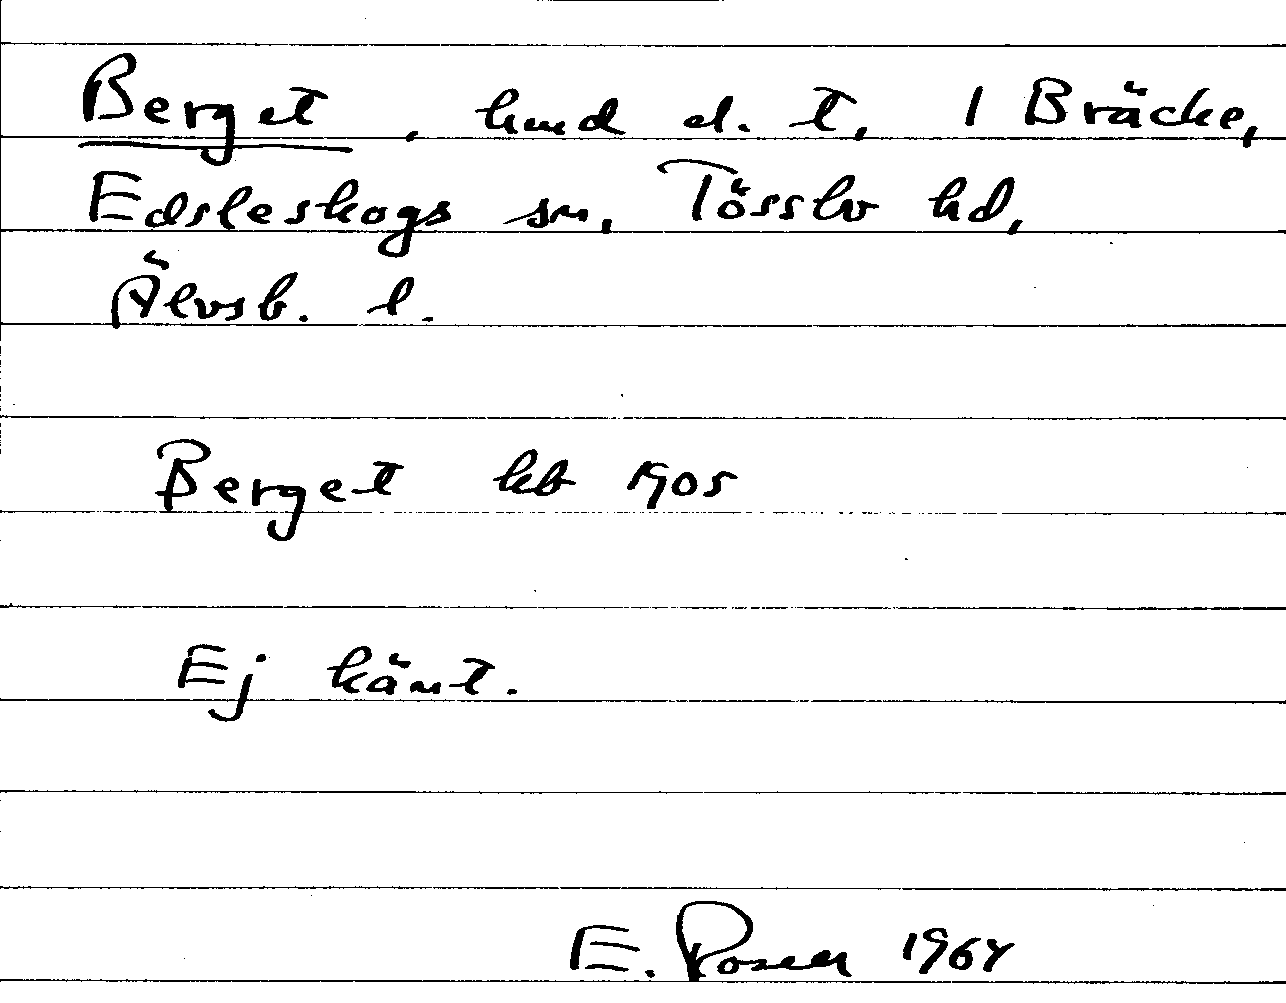 Berget, hmd el. t. 1 Bräcke,
Edsleskogs sn, Tössbo hd,
Älvsb. l.
Berget kb 1905
Ej känt.
E. Rosen 1964